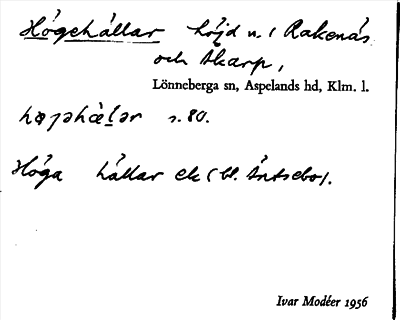 Högehällar höjd n. i Rakenäs
och Skarp,
Lönneberga sn, Aspelands hd, Klm. l.
s. 80.
Höga hällar ek (bl. Äntsebo).
Ivar Modéer 1956